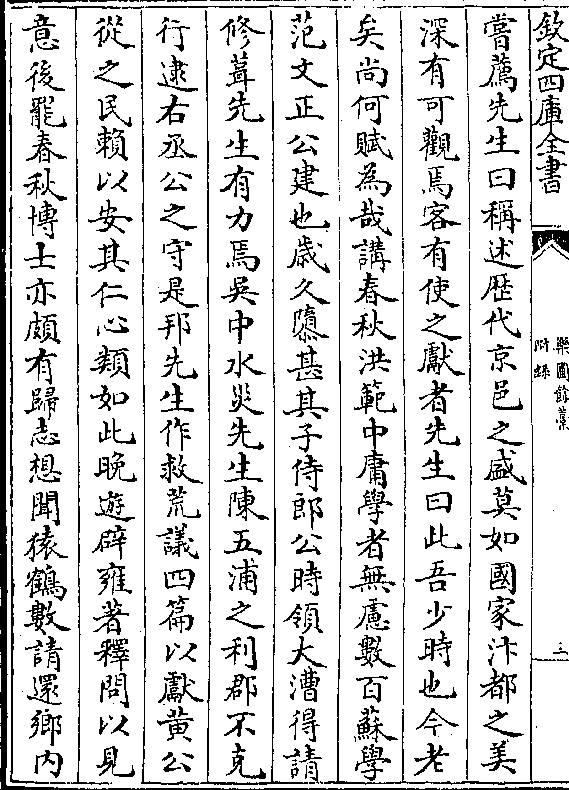 欽定四庫全書
樂圃餘藁
附録
三
嘗薦先生曰稱述歴代京邑之盛莫如國家汴都之美
深有可觀焉客有使之獻者先生曰此吾少時也今老
矣尚何賦為哉講春秋洪範中庸學者無慮數百蘇學
范文正公建也歳久隳甚其子侍郎公時領大漕得請
修葺先生有力焉吳中水災先生陳五浦之利郡不克
行逮右丞公之守是邦先生作救荒議四篇以獻黄公
從之民賴以安其仁心類如此晩遊辟雍著釋問以見
意後罷春秋博士亦頗有歸志想聞猿鶴數請還鄉内